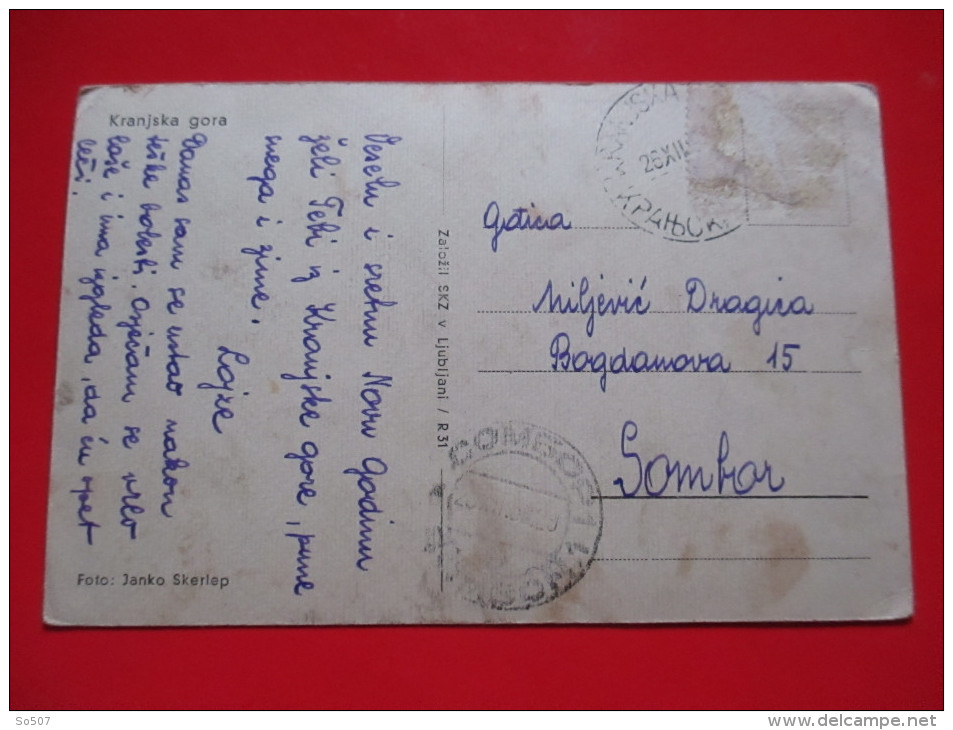 Kranjska gora
Veselu i sretnu Novu Godinu
želi Tebi iz Kranjske gore, pune
snega i zime.
Lojze
Danas sam se ustao nakon
teške bolesti. Osječam se vrlo
loše i ima izgleda, da ću opet
leći.
Foto: Janko Skerlep
Založil SKZ v Ljubljani / R 31
KRANJSKA
26 XII
КРАЊСК
Gđica
Miljević Dragica
Bogdanova 15
Sombor
СОМБОР 1
So507
delcampe.net